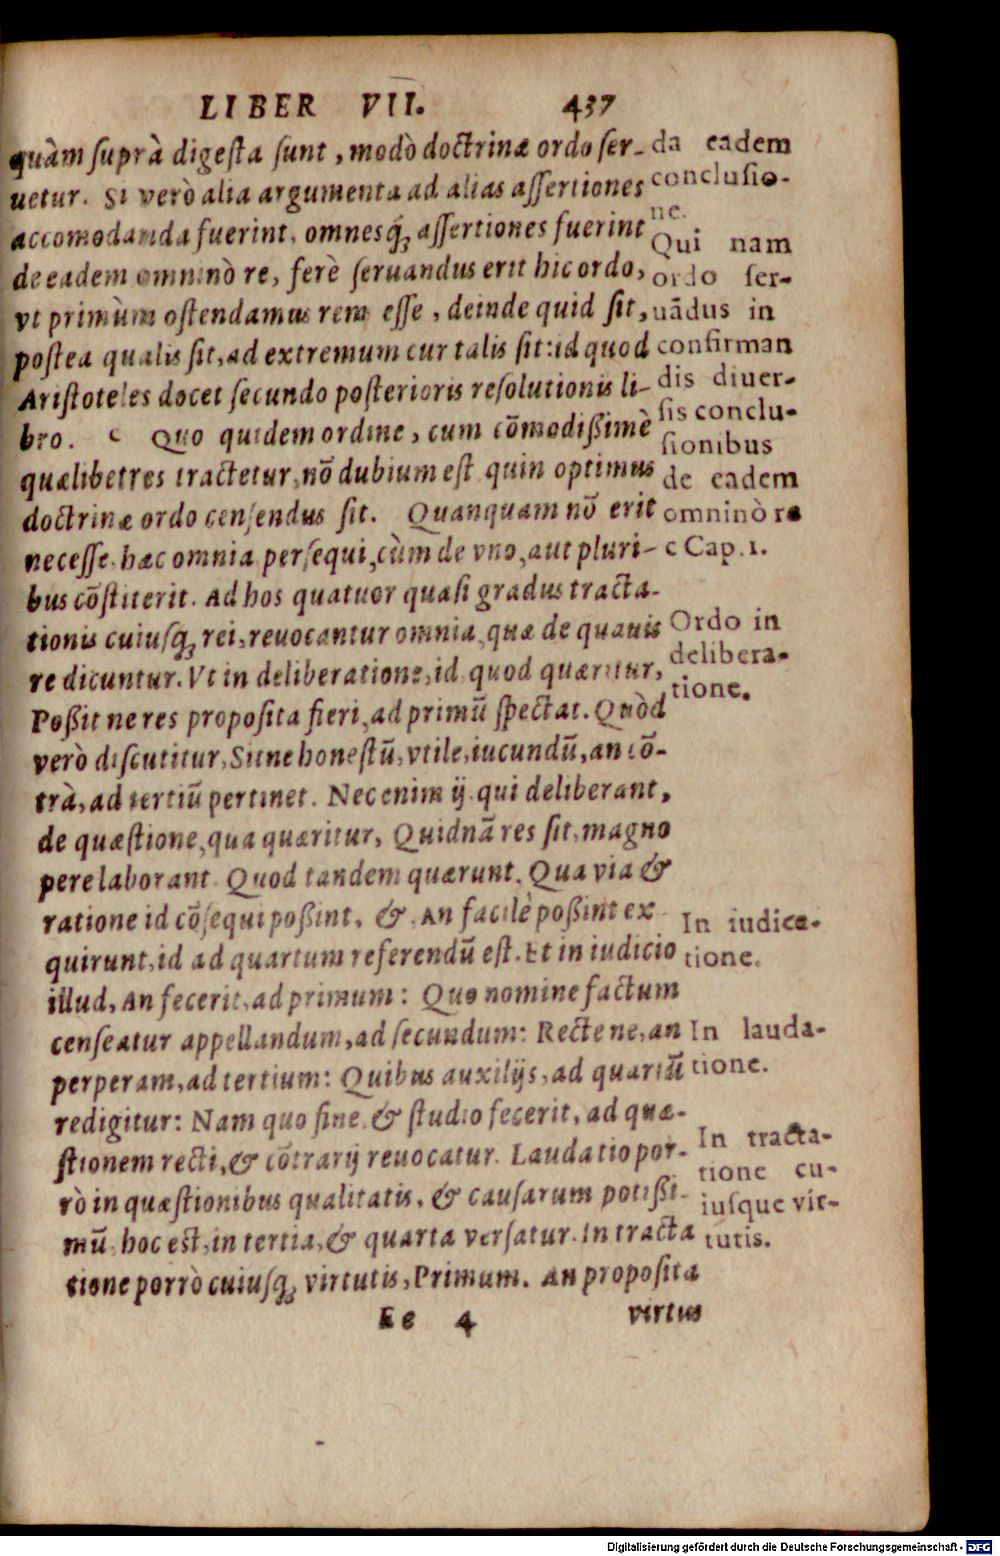 LIBER VII. 437
quàm suprà digesta sunt, modò doctrinæ ordo ser-
uetur. Si verò alia argumenta ad alias assertiones
accomodanda fuerint, omnesq́ꝫ assertiones fuerint
de eadem omninò re, ferè seruandus erit hic ordo,
vt primùm ostendamus rem esse, deinde quid sit,
postea qualis sit, ad extremum cur talis sit: id quod
Aristoteles docet secundo posterioris resolutionis li-
bro. c Quo quidem ordine, cum cõmodißimè
quælibet res tractetur, nõ dubium est quin optimus
doctrinæ ordo censendus sit. Quanquam nõ erit
necesse, hæc omnia persequi, cùm de vno, aut pluri-
bus cõstiterit. Ad hos quatuor quasi gradus tracta-
tionis cuiusqꝫ rei, reuocantur omnia, quæ de quauis
re dicuntur. Vt in deliberatione, id quod quæritur,
Poßit ne res proposita fieri, ad primũ spectat. Quòd
verò discutitur, Sitne honestũ, vtile, iucundũ, an cõ-
trà, ad tertiũ pertinet. Nec enim ij qui deliberant,
de quæstione, qua quæritur, Quidnã res sit, magno
pere laborant Quod tandem quærunt, Qua via &
ratione id cõsequi poßint, &, An facilè poßint ex
quirunt, id ad quartum referendũ est. Et in iudicio
illud, An fecerit, ad primum: Quo nomine factum
censeatur appellandum, ad secundum: Recte ne, an
perperam, ad tertium: Quibus auxilijs, ad quartũ
redigitur: Nam quo fine & studio fecerit, ad quæ-
stionem recti, & cõtrarij reuocatur. Laudatio por-
rò in quæstionibus qualitatis, & causarum potißi-
mũ, hoc est, in tertia, & quarta versatur. In tracta
tione porrò cuiusqꝫ virtutis, Primum. An proposita
Ee 4 virtus
da eadem
conclusio-
ne.
Qui nam
ordo ser-
uãdus in
confirman
dis diuer-
sis conclu-
sionibus
de eadem
omninò re
c Cap. 1.
Ordo in
delibera-
tione.
In iudica-
tione.
In lauda-
tione.
In tracta-
tione cu-
iusque vir-
tutis.
Digitalisierung gefördert durch die Deutsche Forschungsgemeinschaft - DFG